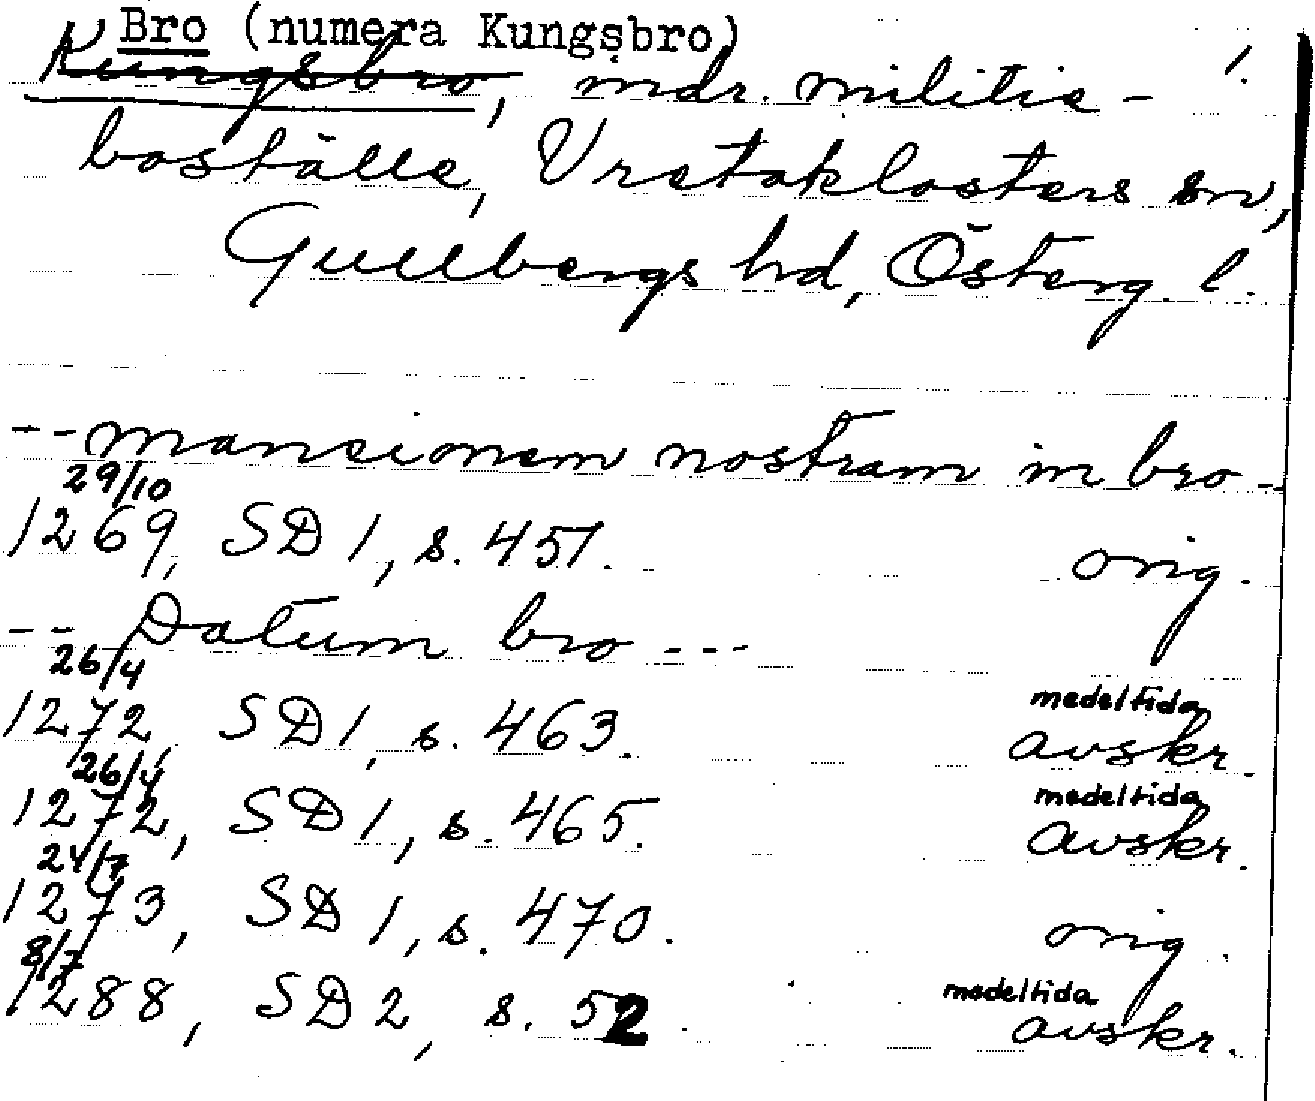 Bro (numera Kungsbro)
Kungsbro, mdr. militie- 1.
boställe, Vretaklosters sn,
Gullbergs hd, Österg. l.
-- mansionem nostram in bro --
29/10
1269, SD 1, s. 451. orig.
-- Datum bro ---
26/4
1272, SD 1, s. 463. medeltida avskr.
26/4
1272, SD 1, s. 465. medeltida avskr.
24/7
1273, SD 1, s. 470. orig.
8/7
1288, SD 2, s. 52. medeltida avskr.